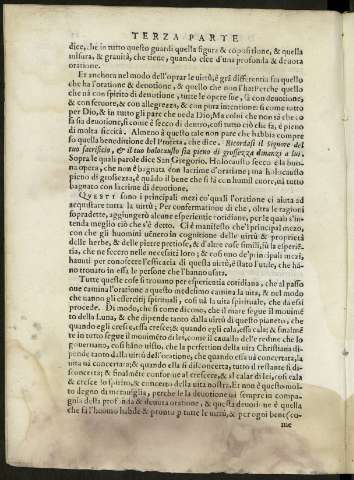 TERZA PARTE
dice, che in tutto questo guardi quella figura & cõpositione, & quella
misura, & gravità, che tiene, quando esce d'una profonda & devota
oratione.
Et anchora nel modo dell'oprar le uirtù, è grã differentia fra quello
che ha l'oratione & devotione, & quello che non l'ha: Perche quello
che hà cõ spirito di devotione, tutte le opere sue, fà con devotione,
& con fervore, & con allegrezza, & con pura intentione si come tutto
per Dio, & in tutto gli pare che ueda Dio, Ma colui che non hà che co
sa sia devotione, si come è secco di dentro, così tutto ciò che fà, è pieno
di molta siccità. Almeno à questo tale non pare che habbia compre
so quella beneditione del Profeta, che dice. Ricordasi il Signore del
tuo sacrificio, & il tuo holocausto sia pieno di grossezza dinanzi a lui.
Sopra le quali parole dice San Gregorio. Holocausto secco è la buo
na opera, che non è bagnata con lacrime d'oratione; ma holocausto
pieno di grossezza, è quãdo il bene che si fà con humil cuore, uà tutto
bagnato con lacrime di devotione.
QUESTI sono i principali mezi, co' quali l'oratione ci aiuta ad
acquistare tutta la uirtù; Per confermatione di che, oltra le ragioni
sopradette, aggiungerò alcune esperientie cotidiane, per le quali s'in
tenda meglio ciò che s'è detto. Ci è manifesto che'l principal mezo,
con che gli huomini uẽnero in cognitione delle uirtù & proprietà
delle herbe, & delle pietre pretiose, & d'altre cose simili, fù la esperiẽ
tia, che ne fecero nelle necessità loro; & così uno de' principali mezi,
hauuti per conoscere l'efficacia di questa uirtù, è stato l'utile, che han
no trovato in essa le persone che l'hanno usata.
Tutte queste cose si trouano per esperientia cotidiana, che al passo
que camina l'oratione a questo medesimo camina la uita, & nel modo
che uanno gli essercitij spirituali, così uà la vita spirituale, che da essi
procede. Di modo, che si come dicono, che il mare segue il mouimẽ
to della Luna, & che dipende tanto dalla uirtù di questo pianeto, che
quando egli cresce, essa cresce; & quando egli cala, essa cala; & finalmẽ
te in tutto segue il mouimẽto di lei, come il cauallo delle redine che lo
gouernano, così hãno uisto, che la perfettion della uita Christiana di-
pende tanto dalla uirtù dell'oratione, che quando essa uà concertata, la
uita uà concertata; & quando ella si discõcerta, tutto il restante si di-
sconcerta; & finalmẽte conforme al crescere, & al calar di lei, così cala
& cresce lo spirito, & concerto della uita nostra. Et non è questo mol-
to degno di merauiglia, perche se la devotione uà sempre in compa-
gnia della profonda & devota oratione, & questa deuotione è quella
che fà l'huomo habile & pronto p tutte le uirtù, & per ogni bene (co-
me